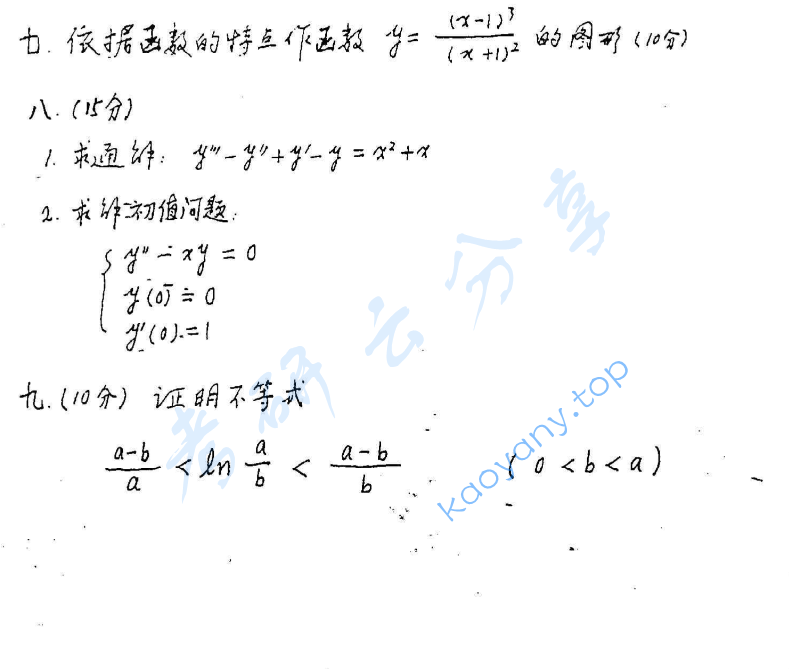 七. 依据函数的特点作函数 y = (x-1)³/(x+1)² 的图形 (10分)
八. (15分)
1. 求通解: y''' - y'' + y' - y = x² + x
2. 求解初值问题:
{ y'' - xy = 0
y(0) = 0
y'(0) = 1
九. (10分) 证明不等式
(a-b)/a < ln a/b < (a-b)/b (0 < b < a)
考研云分享
kaoyany.top